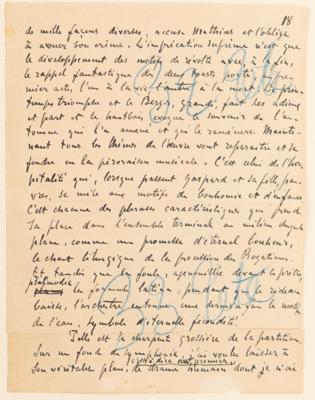 18
de mille façons diverses, accuse Mathias et l'oblige
à avouer son crime. L'implication suprême n'est que
le développement des motifs de révolte avec, à la fin,
le rappel fantastique des deux toasts portés, premier
acte, l'un à la vie l'autre à la mort. Le prin-
temps triomphe et le Berger, grandi, fait ses adieux
et part et le hautbois évoque le souvenir de l'au-
tomne qui l'a amené et qui le ramènera. Mainte-
nant tous les thèmes de l'œuvre vont reparaître et se
fondre en la péroraison musicale. C'est celui de l'hos-
pitalité qui, lorsque passent Gaspard et sa fille, pau-
vres, se mêle aux motifs de bonhomie et d'enfance
C'est chacune des phrases caractéristiques qui prend
sa place dans l'ensemble terminal au milieu duquel
plane, comme une promesse d'éternel bonheur,
le chant liturgique de la procession des Rogations.
Et, tandis que la foule, agenouillée devant le prêtre
psalmodie la formule latine, pendant que le rideau
baisse, l'orchestre entonne une dernière fois le motif
de l'eau, symbole d'éternelle fécondité.
Telle est la charpente grossière de la partition.
Sur un fond de symphonie, j'ai voulu laisser à
son véritable plan, le drame humain dont je n'ai